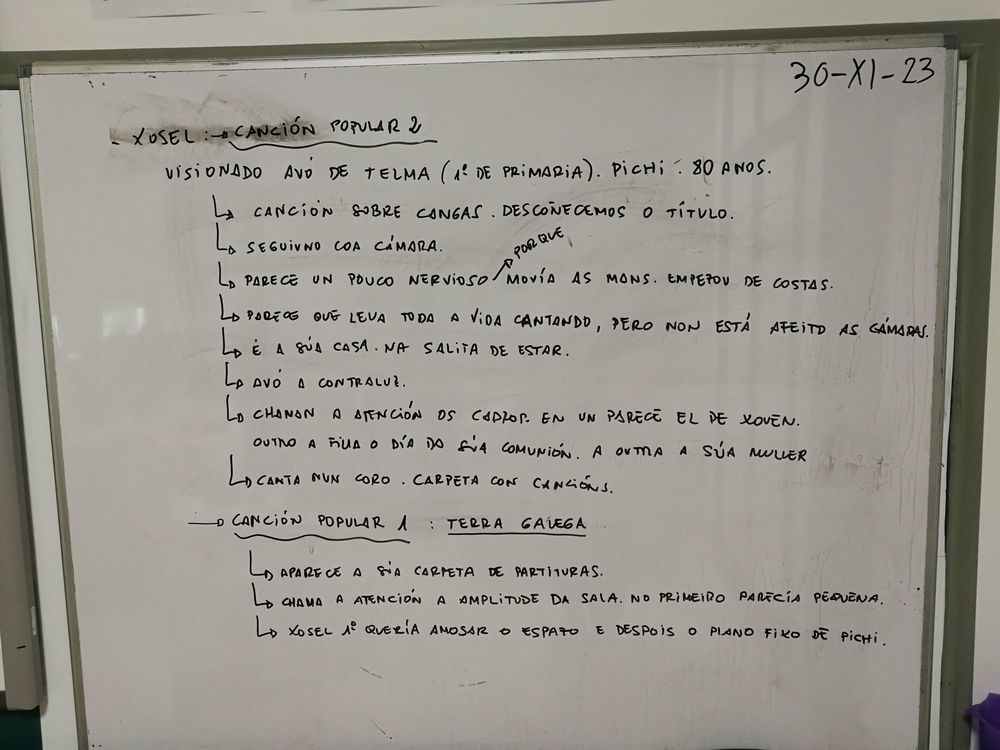 30-XI-23
- XOSEL: → CANCIÓN POPULAR 2
VISIONADO AVÓ DE TELMA (1º DE PRIMARIA). PICHI. 80 ANOS.
↳ CANCIÓN SOBRE CANGAS. DESCOÑECEMOS O TÍTULO.
↳ SEGUIVNO COA CÁMARA.
PORQUE
↳ PARECE UN POUCO NERVIOSO ↗ MOVÍA AS MANS. EMPEZOU DE COSTAS.
↳ PARECE QUE LEVA TODA A VIDA CANTANDO, PERO NON ESTÁ AFEITO AS CÁMARAS.
↳ É A SÚA CASA. NA SALITA DE ESTAR.
↳ AVÓ A CONTRALUZ.
↳ CHAMAN A ATENCIÓN OS CADROS. EN UN PARECE EL DE XOVEN.
OUTRO A FILLA O DÍA DA SÚA COMUNIÓN. A OUTRA A SÚA MULLER
↳ CANTA NUN CORO. CARPETA CON CANCIÓNS.
→ CANCIÓN POPULAR 1 : TERRA GALEGA
↳ APARECE A SÚA CARPETA DE PARTITURAS.
↳ CHAMA A ATENCIÓN A AMPLITUDE DA SALA. NO PRIMEIRO PARECÍA PEQUENA.
↳ XOSEL 1º QUERÍA AMOSAR O ESPAZO E DESPOIS O PLANO FIXO DE PICHI.